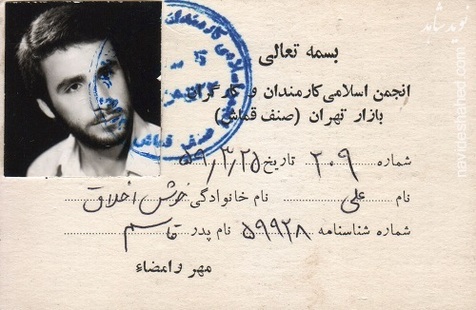 بسمه تعالی
انجمن اسلامی کارمندان و کارگران
بازار تهران (صنف قماش)
شماره ۲۰۹ تاریخ ۵۹/۳/۲۵
نام علی نام خانوادگی خوش اخلاق
شماره شناسنامه ۵۹۹۲۸ نام پدر قاسم
مهر و امضاء
نوید شاهد
navideshahed.com